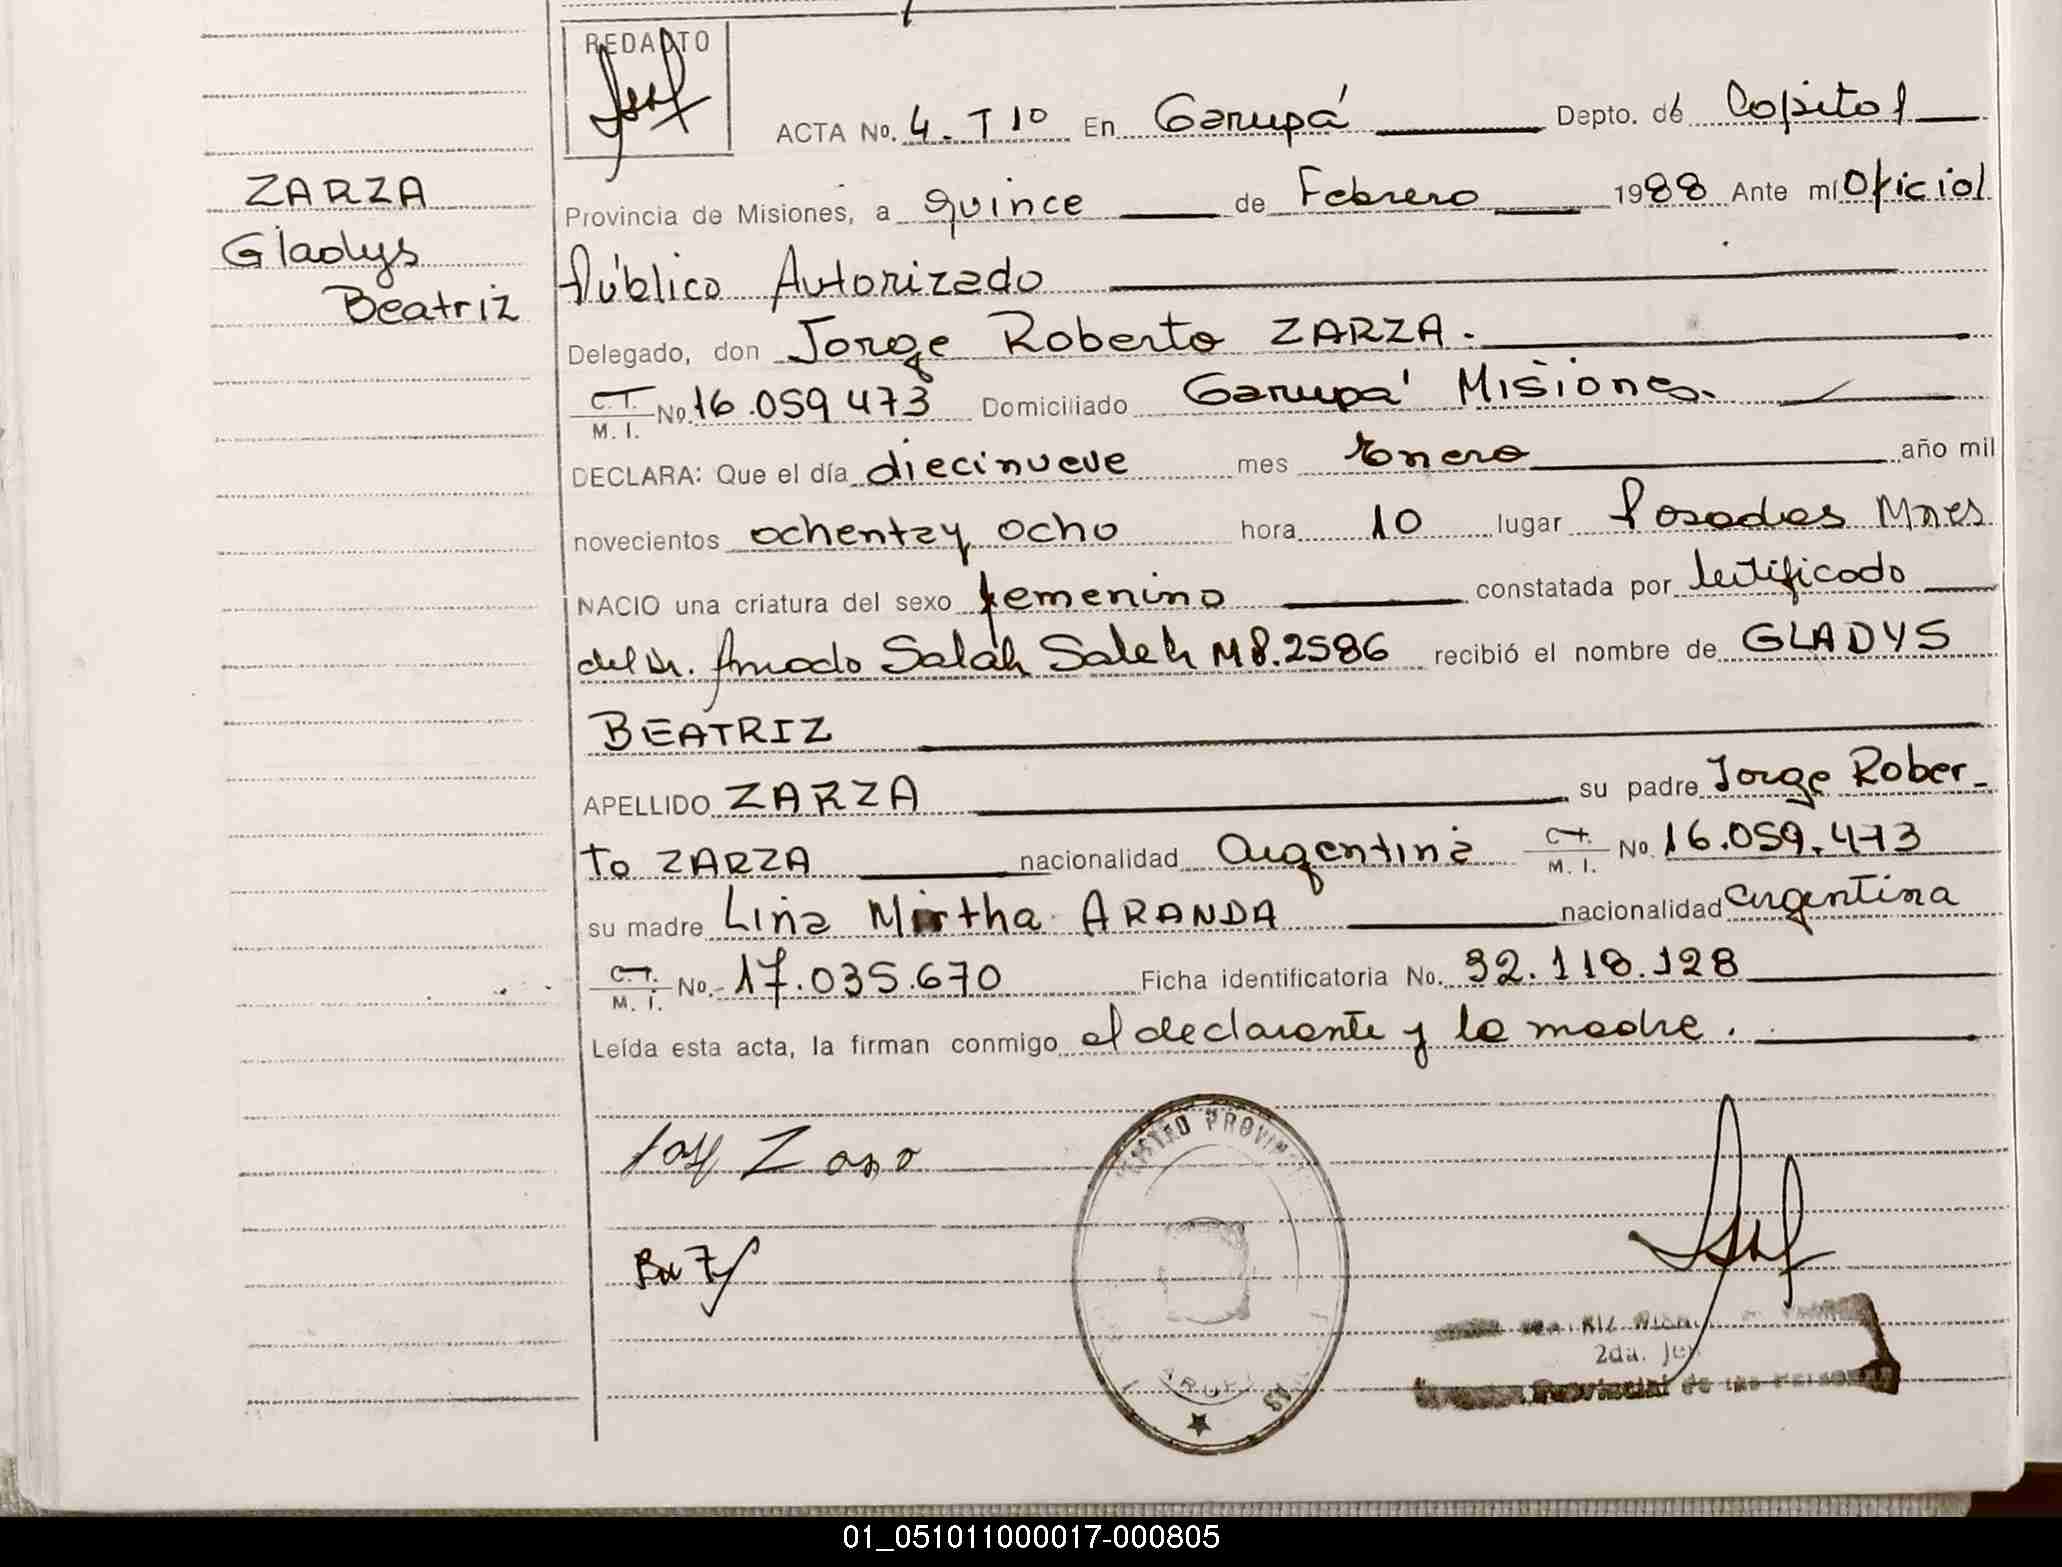 REDACTO
ACTA No. 4. T 1º En Garupá Depto. de Capital
ZARZA
Provincia de Misiones, a quince de Febrero 1988 Ante mí Oficial
Gladys
Público Autorizado
Beatriz
Delegado, don Jorge Roberto ZARZA.
C.I.
M. I. No. 16.059 473 Domiciliado Garupá Misiones.
DECLARA: Que el día diecinueve mes Enero año mil
novecientos ochenta y ocho hora 10 lugar Posadas Mnes
NACIO una criatura del sexo femenino constatada por Certificado
del Dr. Amado Salah Saleh MP.2586 recibió el nombre de GLADYS
BEATRIZ
APELLIDO ZARZA su padre Jorge Rober-
to ZARZA nacionalidad Argentina C.I. M. I. No. 16.059.473
su madre Lina Mirtha ARANDA nacionalidad argentina
C.I. M. I. No. 17.035.670 Ficha identificatoria No. 32.118.128
Leída esta acta, la firman conmigo el declarante y la madre.
PROVIN
2da. Je
Provincial de las
01_051011000017-000805